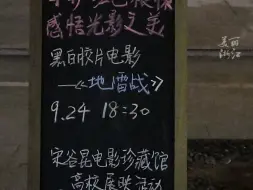 感悟光影之美
黑白胶片电影
《地雷战》
9.24 18:30
宋谷昆电影珍藏馆
高校展映活动
美丽
浙江